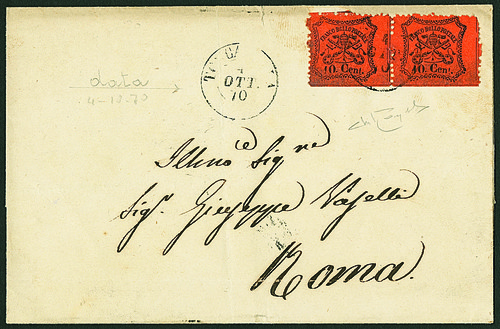 FRANCO BOLLO POSTALE FRANCO BOLLO POSTALE
10 Cent. 10 Cent.
OTT.
70
data
4-10-70
Illmo Sig re
Sigr. Giuseppe Vaselli
Roma.